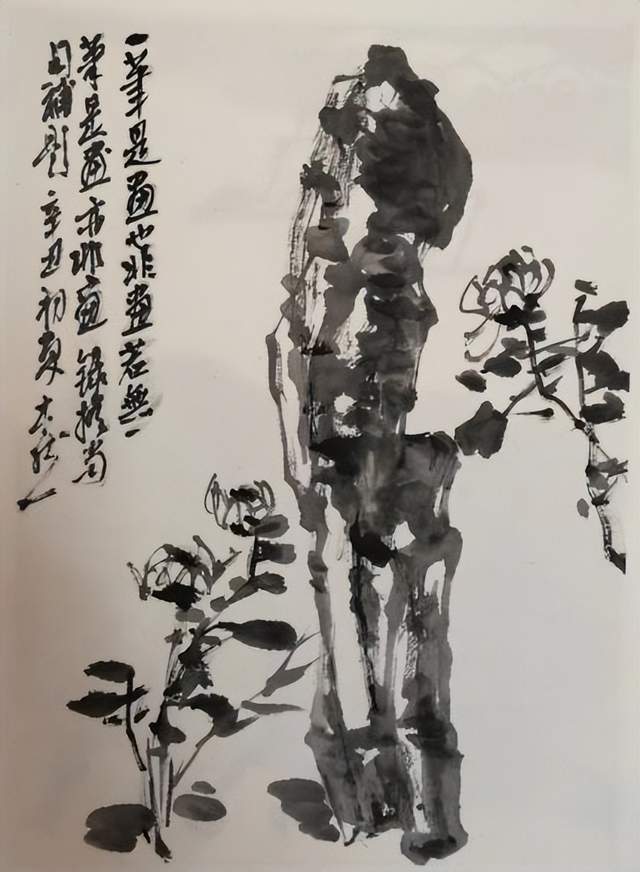 一筆是畫也非畫若無一
筆是畫亦非畫 錄擔當
句補題 辛丑初夏